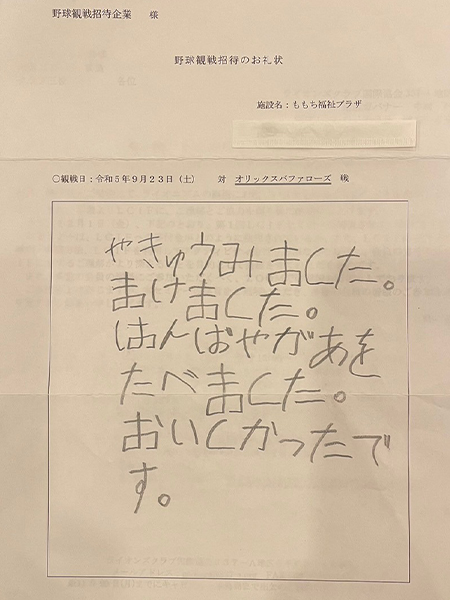 野球観戦招待企業 様
野球観戦招待のお礼状
施設名：ももち福祉プラザ
○観戦日：令和5年9月23日（土） 対 オリックスバファローズ 戦
やきゅうみました。
まけました。
はんばやがあを
たべました。
おいしかったで
す。